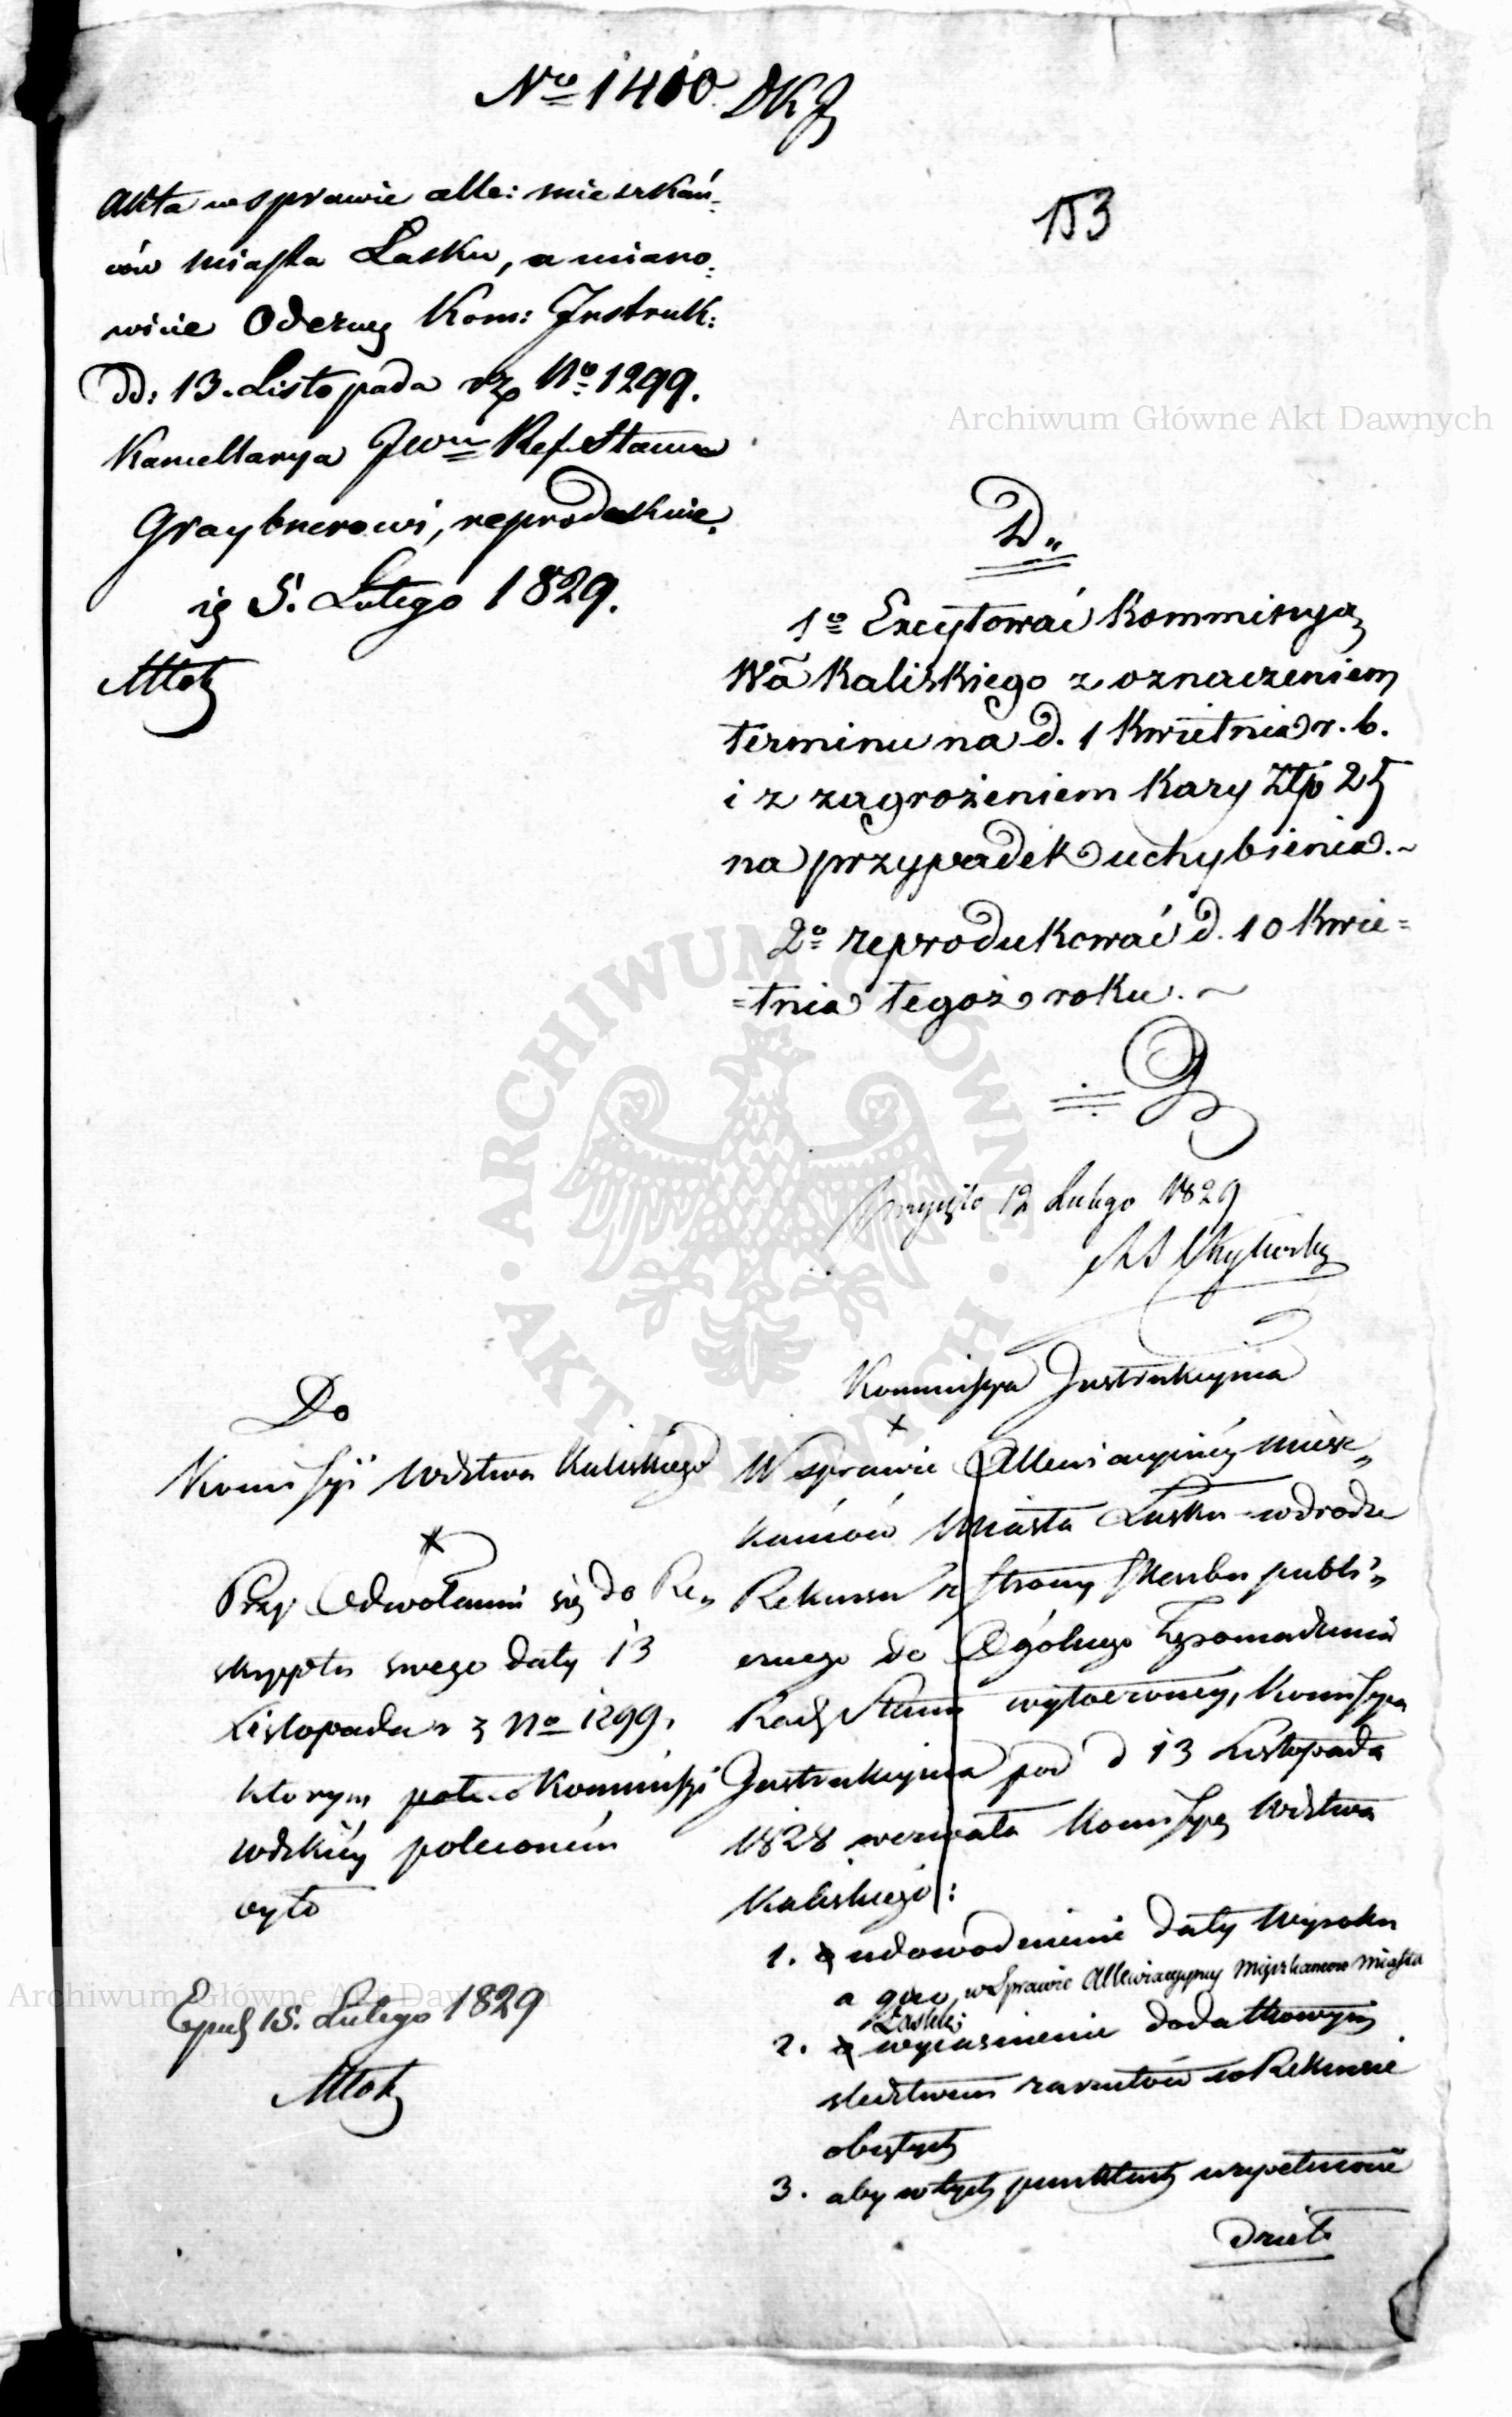 No 1400 DKJ
153
Akta w sprawie alle: mieszkań-
ców miasta Łasku, a miano-
wicie Odezwę Kom: Instruk:
dd: 13. Listopada rz No 1299.
Kancellarya JWu Ref. Stanu
Graybnerowi, reprodukuie.
ię 5. Lutego 1829.
D.
1o Excytować Kommissyą
Wa Kaliskiego z oznaczeniem
terminu na d. 1 Kwietnia r. b.
i z zagrożeniem Kary Złp 25
na przypadek uchybienia.~
2o reprodukować d. 10 Kwie=
=tnia tegoż roku.~
G
przyięto 12 Lutego 1829
Kommissya Instrukcyina
Do
Kommissyi Wdztwa Kaliskiego
Przy Odwołaniu się do Re„
skryptu swego daty 13
Listopada r z No 1299,
którym Kommissyi
Wdzkiéy poleconém
było
Exped 15. Lutego 1829
W sprawie Allewiacyinéy miesz„
kańców Miasta Łasku w drodze
Rekursu z strony Skarbu publi„
cznego do Ogólnego Zgromadzenia
Rady Stanu wytoczoney, Kommissya
Instrukcyina pod d 13 Listopada
1828 wezwała Kommissyę Wdztwa
Kaliskiego:
1. udowodnienie daty Wyroku
a quo, w Sprawie Allewiacyyney Mieszkańcow Miasta
Łasku;
2. wyiaśnienie dodatkowym
śledztwem zarzutów w Rekursie
obiętych
3. aby w tych punktach uzupełnione